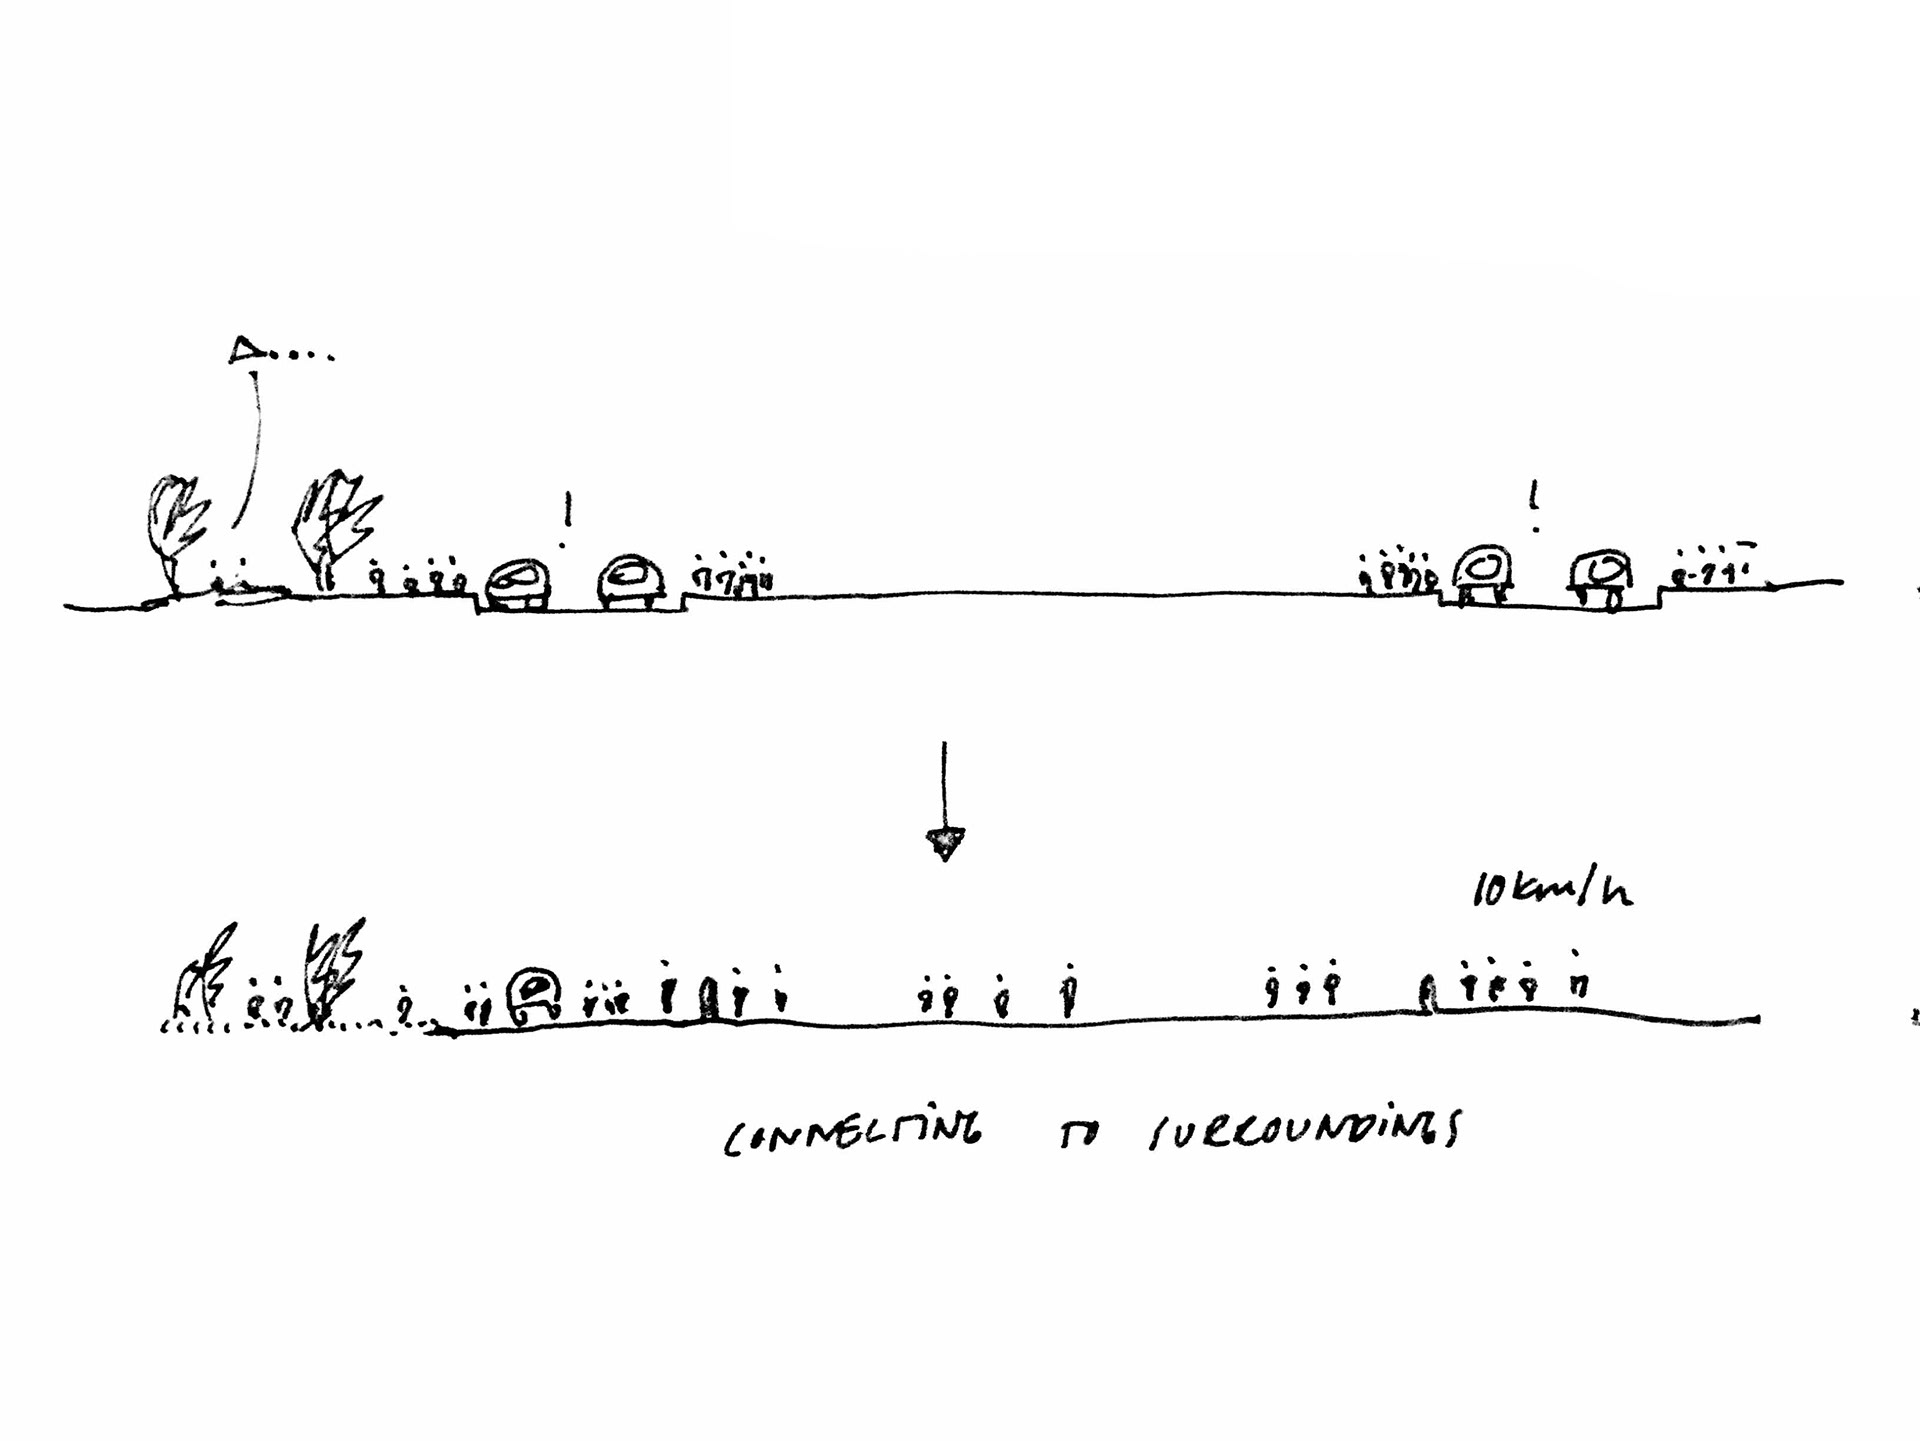 !
!
10km/h
CONNECTING TO SURROUNDINGS